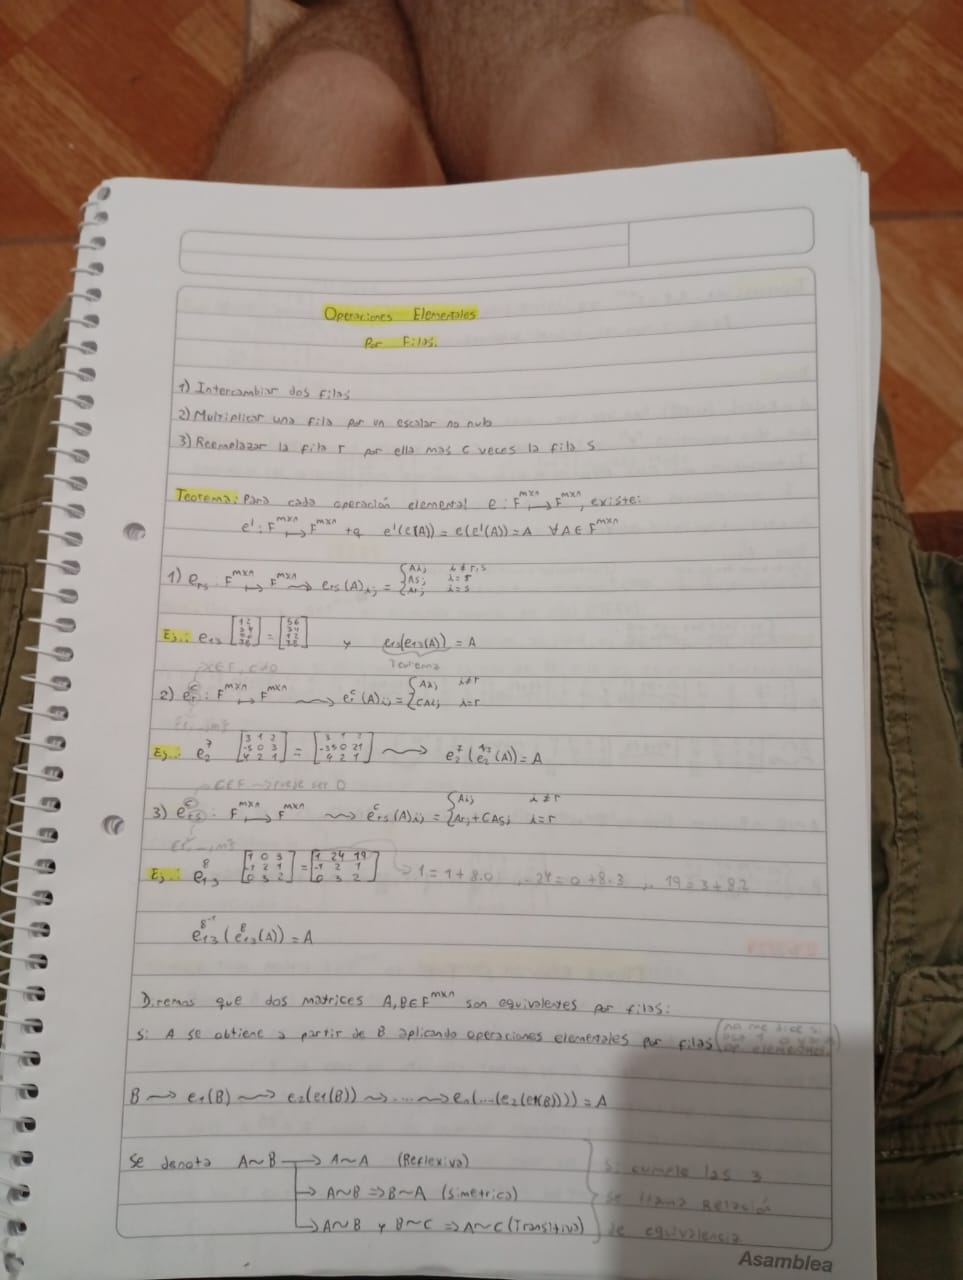 Operaciones Elementales
Por Filas.
1) Intercambiar dos filas
2) Multiplicar una fila por un escalar no nulo
3) Reemplazar la fila r por ella mas c veces la fila s
Teorema: Para cada operación elemental e: F^{m×n} → F^{m×n}, existe:
e': F^{m×n} → F^{m×n} tq e'(e(A)) = e(e'(A)) = A ∀A ∈ F^{m×n}
1) e_{rs}: F^{m×n} → F^{m×n} ⇝ e_{rs}(A)_{ij} = { A_{ij} i≠r,s ; A_{sj} i=r ; A_{rj} i=s
Ej.: e_{13} [1 2; 3 4; 5 6; 7 8] = [5 6; 3 4; 1 2; 7 8] y e_{13}(e_{13}(A)) = A
Teorema
2) e_r^c: F^{m×n} → F^{m×n} ⇝ e_r^c(A)_{ij} = { A_{ij} i≠r ; cA_{ij} i=r
Ej.: e_2^7 [3 1 2; -5 0 3; 4 2 1] = [3 1 2; -35 0 21; 4 2 1] ⇝ e_2^7(e_2^{1/7}(A)) = A
c∈F → puede ser 0
3) e_{rs}^c: F^{m×n} → F^{m×n} ⇝ e_{rs}^c(A)_{ij} = { A_{ij} i≠r ; A_{rj}+cA_{sj} i=r
Ej.: e_{13}^8 [1 0 3; -1 2 1; 0 3 2] = [1 24 19; -1 2 1; 0 3 2] → 1=1+8.0 , 24=0+8.3 , 19=3+8.2
e_{13}^{8^{-1}}(e_{13}^8(A)) = A
Diremos que dos matrices A,B∈F^{m×n} son equivalentes por filas:
Si A se obtiene a partir de B aplicando operaciones elementales por filas (no me dice si
op elementales)
B ⇝ e1(B) ⇝ e2(e1(B)) ⇝ .... ⇝ en(...(e2(e1(B)))) = A
Se denota A~B → A~A (Reflexiva)
→ A~B ⇒ B~A (Simetrica)
→ A~B y B~C ⇒ A~C (Transitiva)
Si cumple las 3
se llama Relación
de equivalencia
Asamblea